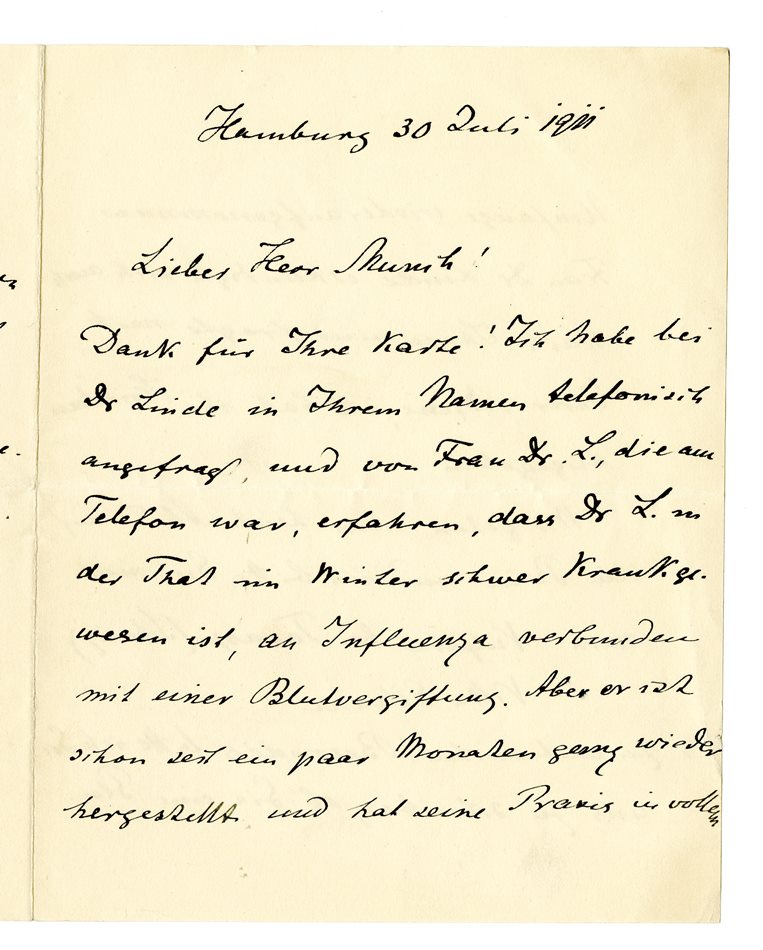 Hamburg 30 Juli 1911
Lieber Herr Munch!
Dank für Ihre Karte! Ich habe bei
Dr Linde in Ihrem Namen telefonisch
angefragt, und von Frau Dr. L., die am
Telefon war, erfahren, dass Dr L. in
der That im Winter schwer Krank ge-
wesen ist, an Influenza verbunden
mit einer Blutvergiftung. Aber er ist
schon seit ein paar Monaten wieder
hergestellt und hat seine Praxis in vollem